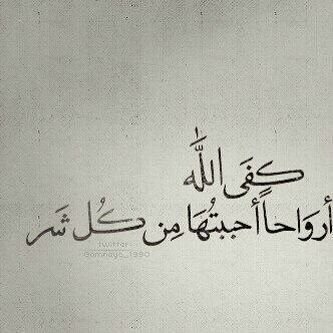 كفى الله
أرواحاً أحببتُهَا مِن كُل شَر
twitter
@omnaya_1990